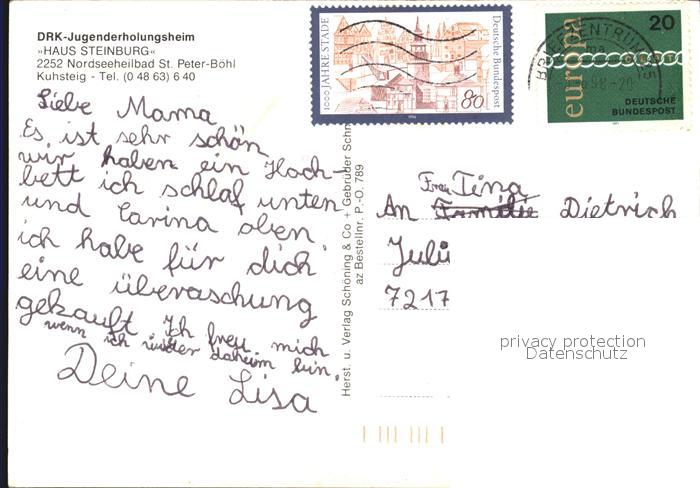 DRK-Jugenderholungsheim
»HAUS STEINBURG«
2252 Nordseeheilbad St. Peter-Böhl
Kuhsteig - Tel. (0 48 63) 6 40
Liebe Mama
Es ist sehr schön
wir haben ein Hoch-
bett ich schlaf unten
und Carina oben
ich habe für dich
eine überaschung
gekauft Ich freu mich
wenn ich wider daheim bin.
Deine Lisa
Herst. u. Verlag Schöning & Co + Gebrüder Schm
az Bestellnr. P.-O. 789
1000 JAHRE STADE
Deutsche Bundespost
80
europa
20
DEUTSCHE
BUNDESPOST
BRIEFZENTRUM
Frau Tina
An Familie Dietrich
Juli
7217
privacy protection
Datenschutz